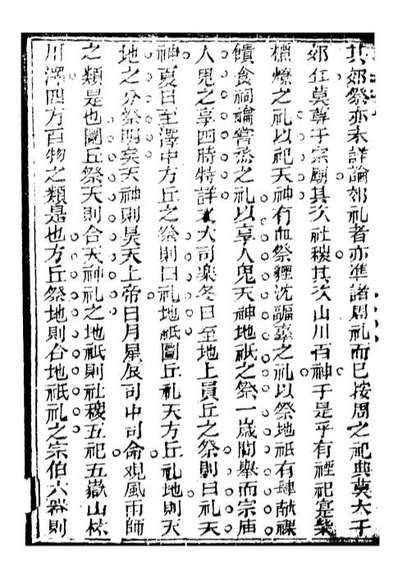 其郊祭亦未詳論郊礼者亦準諸周礼而已按周之祀典莫大于
郊社莫尊于宗廟其次社稷其次山川百神于是乎有禋祀實柴
槱燎之礼以祀天神有血祭貍沈疈辜之礼以祭地祇有肆献祼
饋食祠禴嘗烝之礼以享人鬼天神地祇之祭一歳間舉而宗庙
人鬼之享四時特詳大司楽冬日至地上圓丘之祭則曰礼天
神夏日至澤中方丘之祭則曰礼地祇圜丘礼天方丘礼地則天
地之分祭明矣天神則昊天上帝日月星辰司中司命观風雨師
之類是也圜丘祭天則合天神礼之地祇則社稷五祀五嶽山林
川澤四方百物之類是也方丘祭地則合地祇礼之宗伯六器則